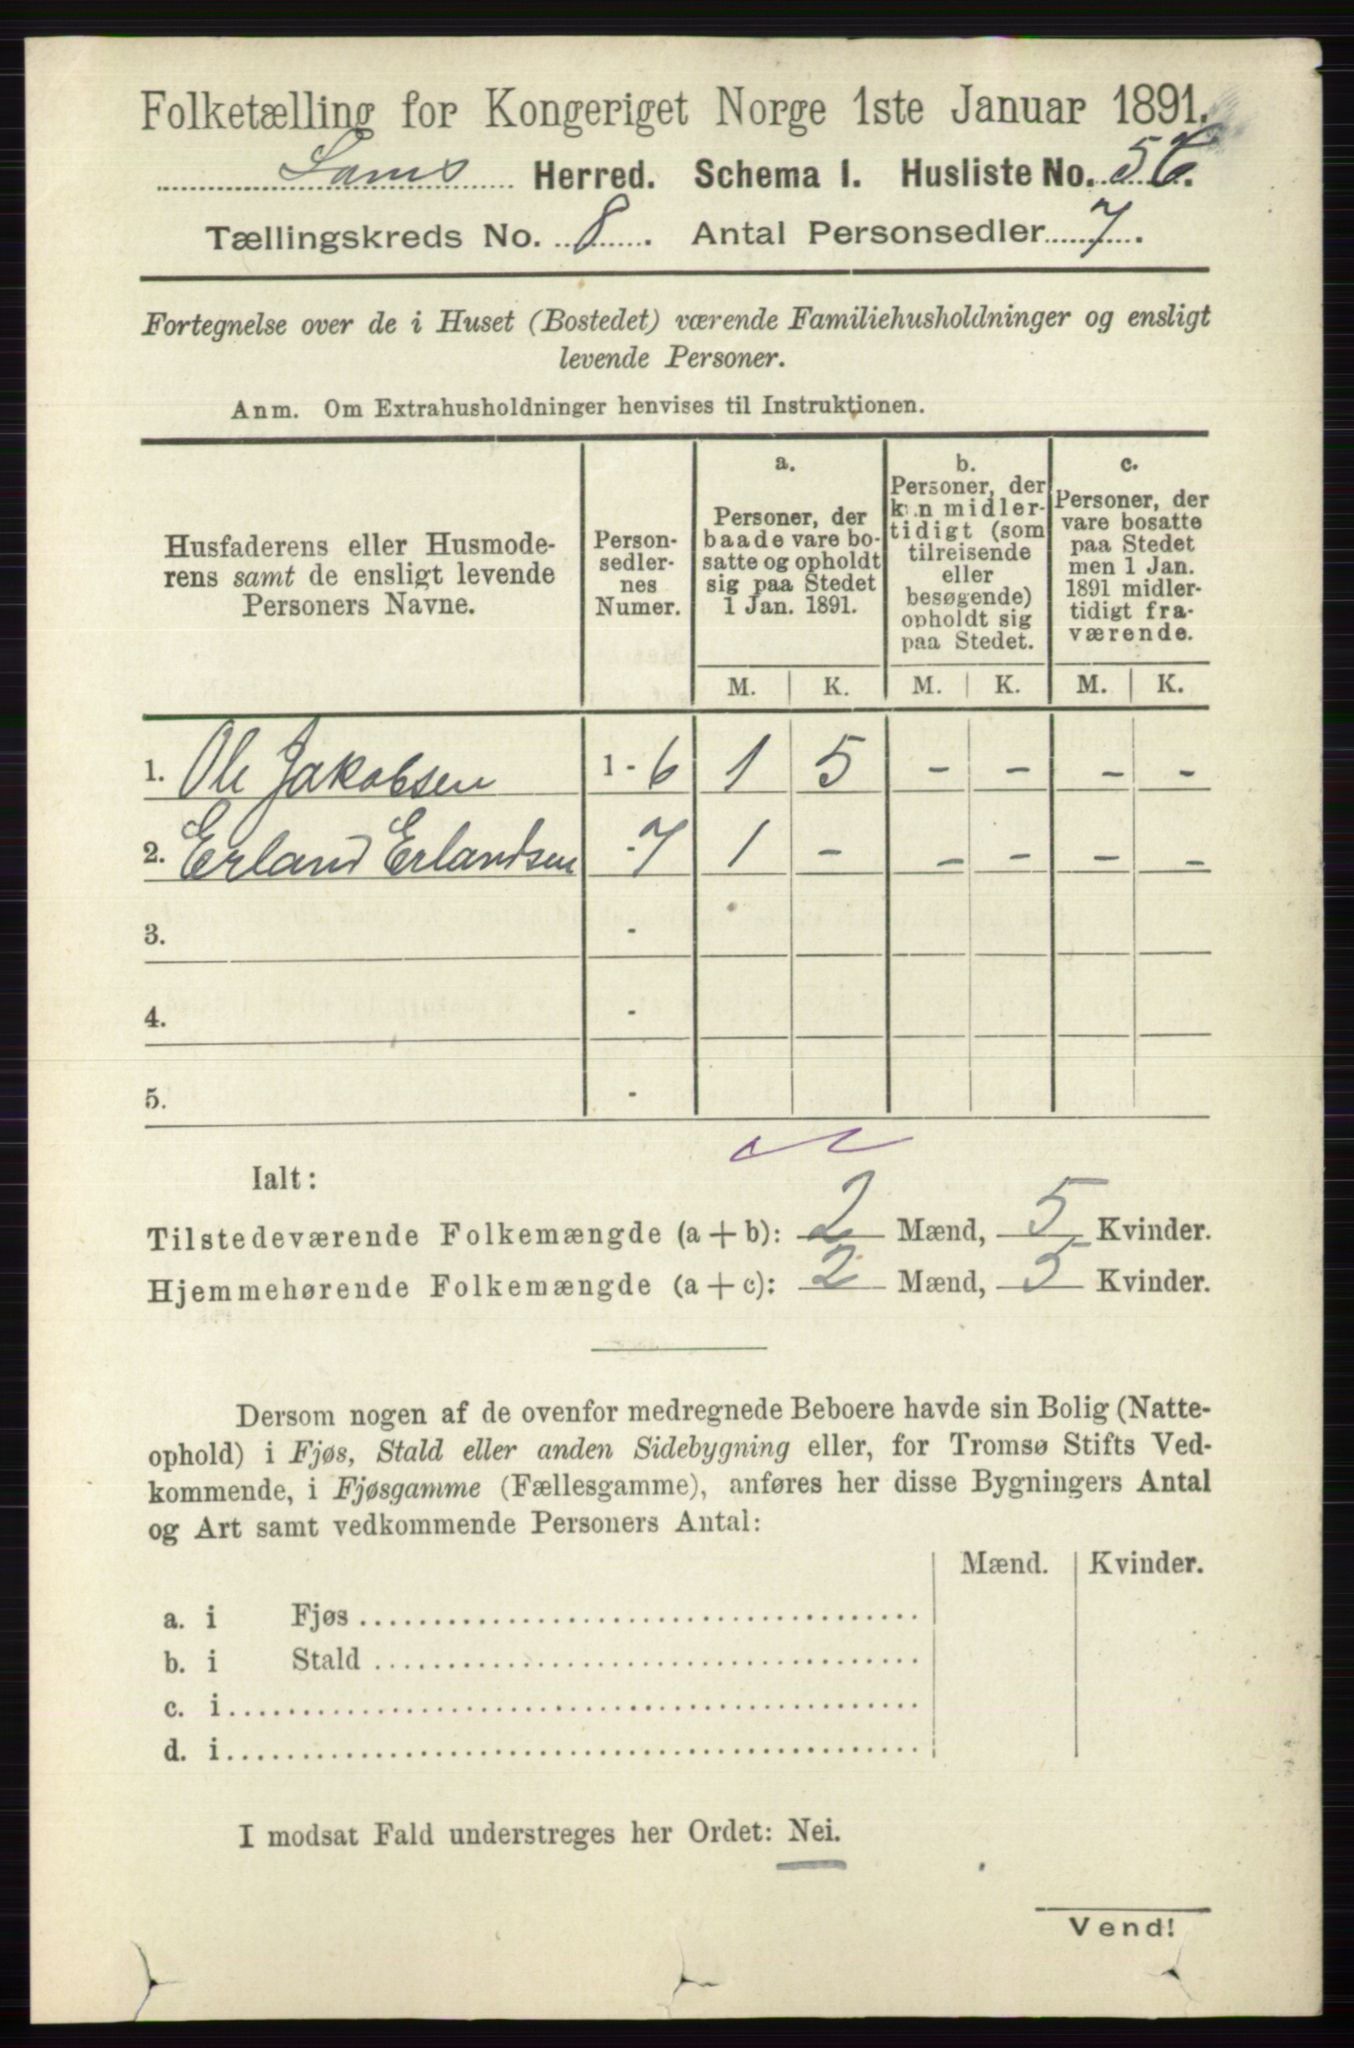 Folketælling for Kongeriget Norge 1ste Januar 1891.
Loms Herred. Schema I. Husliste No. 56.
Tællingskreds No. 8. Antal Personsedler 7.
Fortegnelse over de i Huset (Bostedet) værende Familiehusholdninger og ensligt
levende Personer.
Anm. Om Extrahusholdninger henvises til Instruktionen.
Husfaderens eller Husmode-
rens samt de ensligt levende
Personers Navne.
Person-
sedler-
nes
Numer.
a.
Personer, der
baade vare bo-
satte og opholdt
sig paa Stedet
1 Jan. 1891.
b.
Personer, der
kun midler-
tidigt (som
tilreisende
eller
besøgende)
opholdt sig
paa Stedet.
c.
Personer, der
vare bosatte
paa Stedet
men 1 Jan.
1891 midler-
tidigt fra-
værende.
M. K. M. K. M. K.
1. Ole Jakobsen 1 - 6 1 5 - - - -
2. Erland Erlandsen - 7 1 - - - - -
3. -
4. -
5. -
Ialt:
Tilstedeværende Folkemængde (a + b): 2 Mænd, 5 Kvinder.
Hjemmehørende Folkemængde (a + c): 2 Mænd, 5 Kvinder.
Dersom nogen af de ovenfor medregnede Beboere havde sin Bolig (Natte-
ophold) i Fjøs, Stald eller anden Sidebygning eller, for Tromsø Stifts Ved-
kommende, i Fjøsgamme (Fællesgamme), anføres her disse Bygningers Antal
og Art samt vedkommende Personers Antal:
Mænd. Kvinder.
a. i Fjøs
b. i Stald
c. i
d. i
I modsat Fald understreges her Ordet: Nei.
Vend!